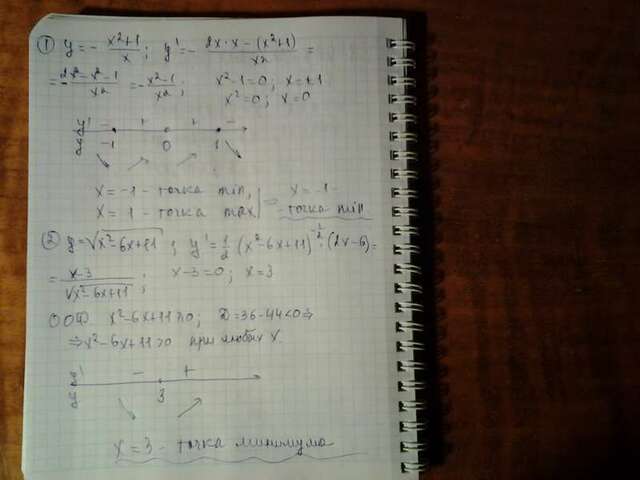 ① y = - x²+1 / x ; y' = - 2x·x - (x²+1) / x² =
= - 2x² - x² - 1 / x² = - x²-1 / x² ; x²-1=0; x=±1
x²=0; x=0
y' - + + -
y -1 0 1
x = -1 - точка min,
x = 1 - точка max ⇒ x = -1 -
- точка min
② y = √x²-6x+11 ; y' = 1/2 (x²-6x+11)^-1/2 · (2x-6) =
= x-3 / √x²-6x+11 ; x-3=0; x=3
ООФ x²-6x+11≥0; D=36-44<0 ⇒
⇒ x²-6x+11>0 при любых x.
y' - +
y 3
x = 3 - точка минимума